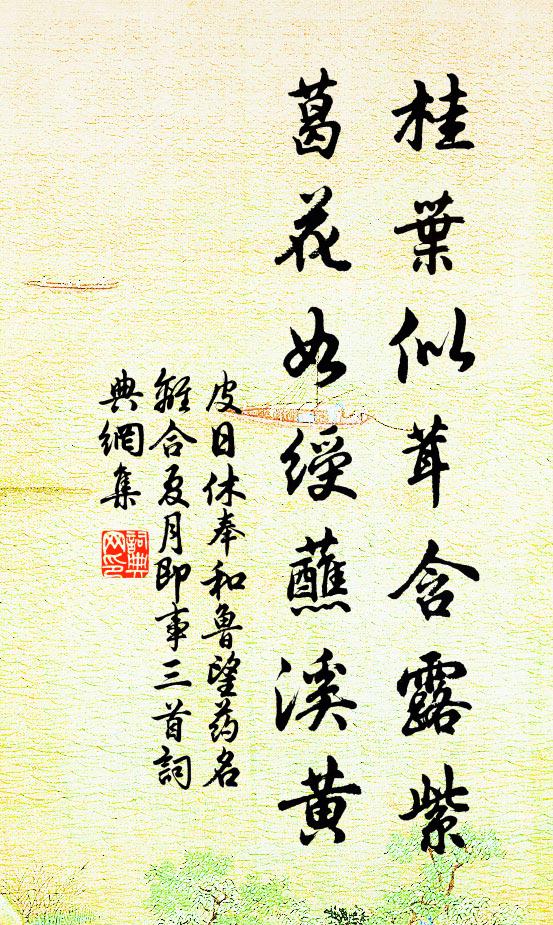 桂葉似茸含露紫
葛花如綬蘸溪黃
皮日休奉和魯望药名
離合夏月即事三首詞
典網集
詞典
网印